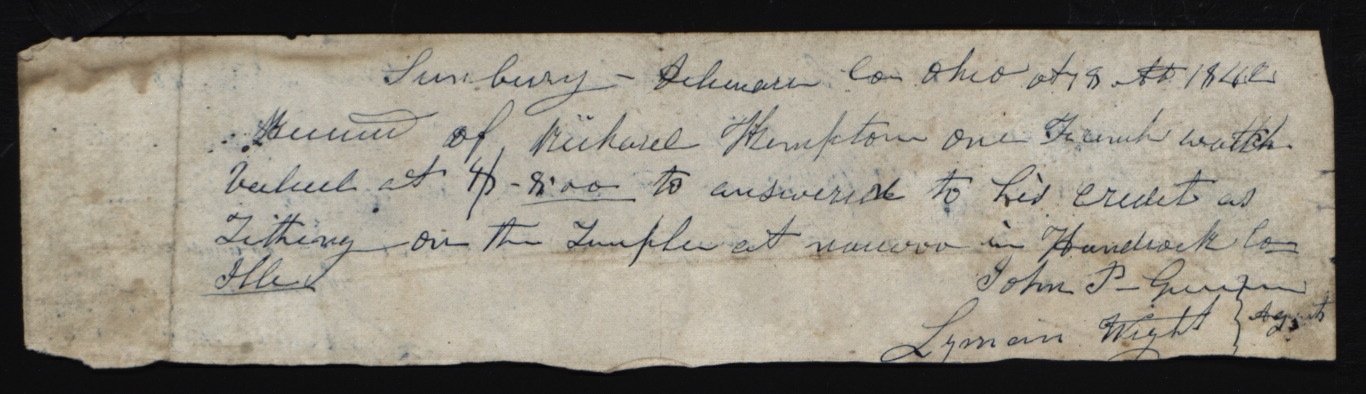 Sunbury - Delaware Co Ohio oct 18th 1842
Received of Richard Hemptom one French watch
Valued at $-8.00 to answered to his credit as
Titheng on the Temple at nauvoo in Handcock Co
Ills
John P- Green
Lyman Wight } Agents